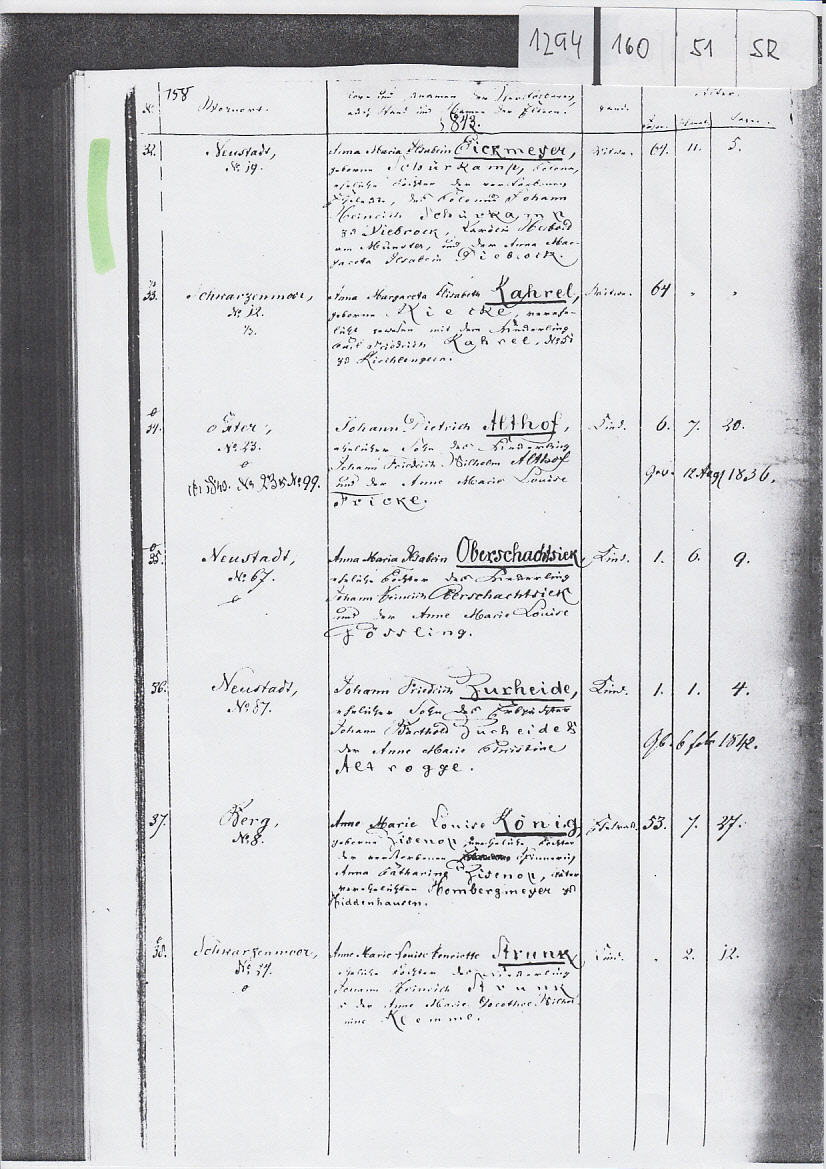 1294 160 51 SR
158
N. Wohnort. Vor- und Zunamen des Verstorbenen, Stand. Alter.
auch Stand und Namen der Eltern.
1843. Jahre. Monate. Tage.
32. Neustadt, Anna Maria Ilsabein Eickmeyer, Witwe. 64. 11. 5.
No. 19. geborne Schürkamp, Colona,
eheliche Tochter der verstorbenen
Eheleute, des Coloni Johann
Heinrich Schürkamp
zu Diebrock, Kirchspiel Herford
am Münster, und der Anna Mar-
gareta Ilsabein Diebrock.
33. Schwarzenmoor, Anna Margareta Elisabeth Kahrel, Witwe. 64 " "
No. 12. geborne Riecke, verehe-
licht gewesen mit dem Heuerling
Carl Friedrich Kahrel, No. 51
zu Kirchlengern.
34. Johann Dietrich Althof, Kind. 6. 7. 20.
No. 23. ehelicher Sohn des Heuerling
Johann Friedrich Wilhelm Althof geb. 12 Aug 1836.
No. 99. und der Anne Marie Louise
Fricke.
35. Neustadt, Anna Maria Ilsabein Oberschachtsiek, Kind. 1. 6. 9.
No. 67. eheliche Tochter des Heuerling
Johann Heinrich Oberschachtsiek
und der Anne Marie Louise
Gössling.
36. Neustadt, Johann Friedrich Zurheide, Kind. 1. 1. 4.
No. 87. ehelicher Sohn des Erbpächter
Johann Barthold Zurheide &
der Anne Marie Christine Gb. 6 feb. 1842.
Altrogge.
37. Berg, Anne Marie Louise König, Ehefrau. 53. 7. 27.
No. 8. geborne Zisenop, uneheliche Tochter
der verstorbenen Spinnerin,
Anna Catharina Zisenop, später
verehelichten Hombergmeyer zu
Hiddenhausen.
38. Schwarzenmoor, Anne Marie Louise Henriette Strunk, Kind. . 2. 12.
eheliche Tochter des Heuerling
Johann Heinrich Strunk
& der Anne Marie Dorothee Wilhel-
mine Klemme.